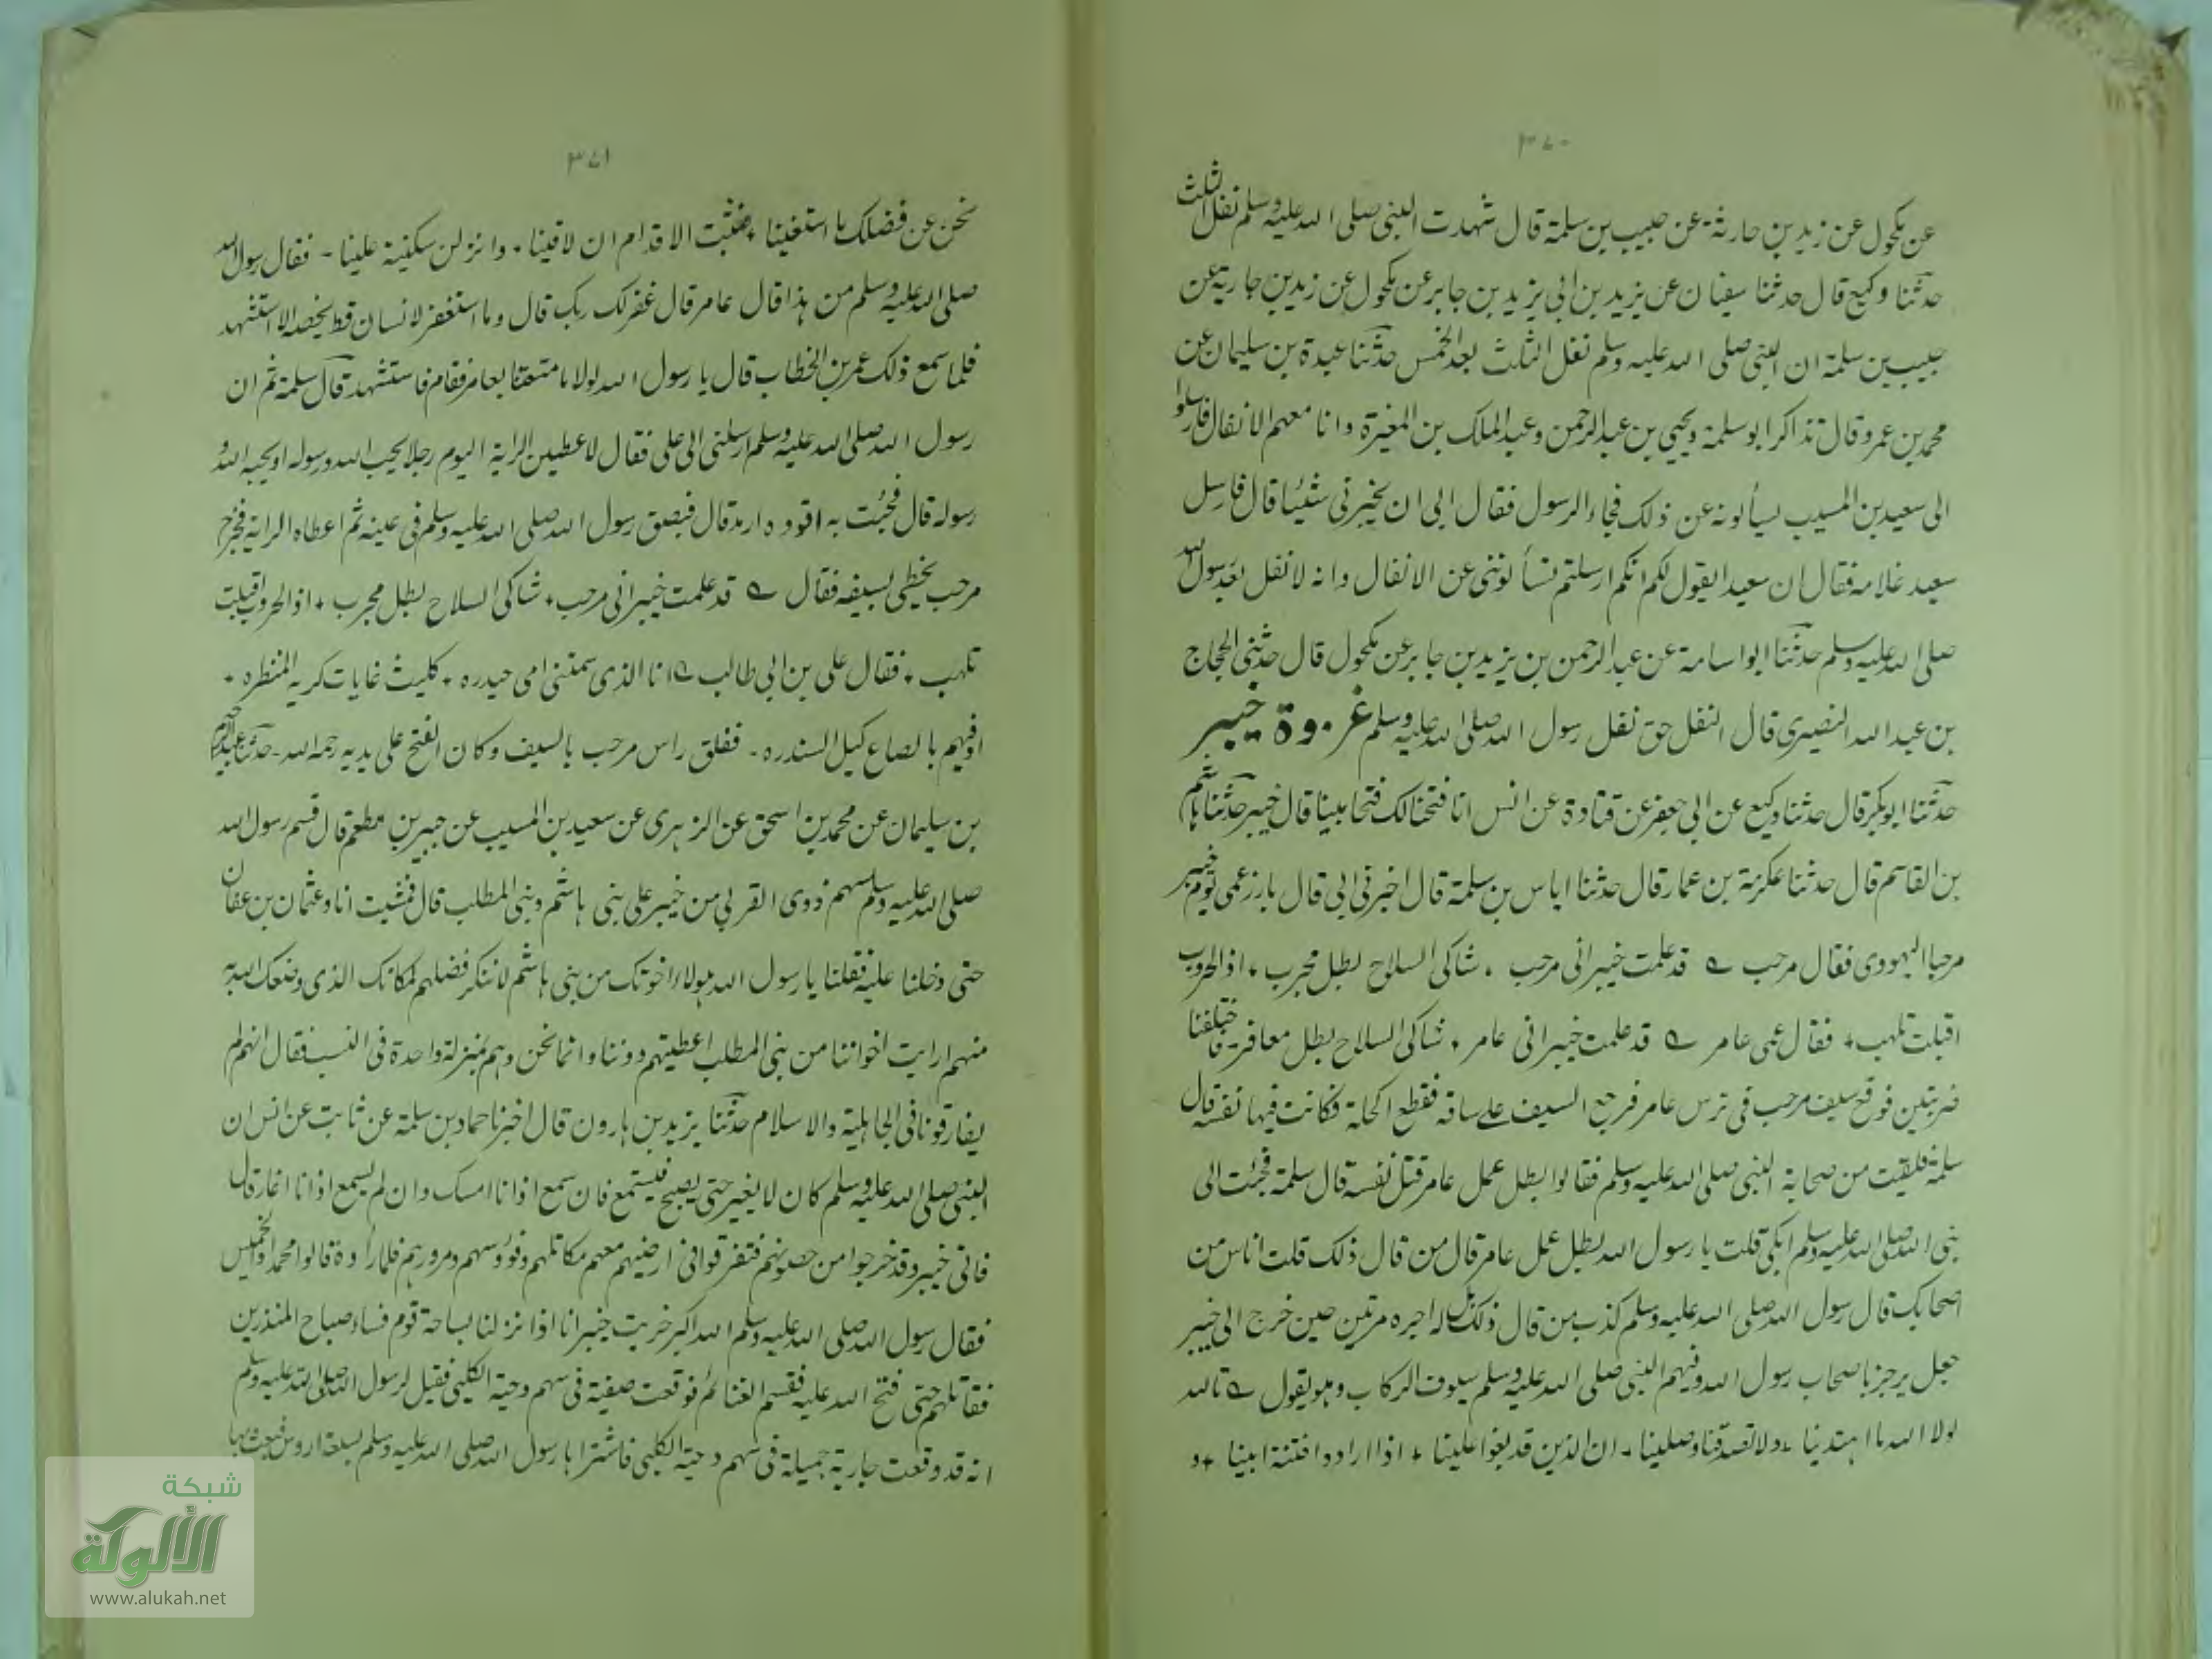 ٣٧٠
عن مكحول عن زيد بن حارثة عن حبيب بن سلمة قال شهدت النبى صلى الله عليه وسلم نفل الثلث
حدثنا وكيع قال حدثنا سفيان عن يزيد بن ابى يزيد بن جابر عن مكحول عن زيد بن جارية عن
حبيب بن سلمة ان النبى صلى الله عليه وسلم نفل الثلث بعد الخمس حدثنا عبدة بن سليمان عن
محمد بن عمرو قال تذاكر ابو سلمة ويحيى بن عبد الرحمن وعبد الملك بن المغيرة وانا معهم الانفال فارسلوا
الى سعيد بن المسيب يسألونه عن ذلك فجاء الرسول فقال ابى ان يخبرنى شئيا قال فارسل
سعيد غلامه فقال ان سعيدا يقول لكم انكم ارسلتم تسألوننى عن الانفال وانه لا نفل بعد رسول الله
صلى الله عليه وسلم حدثنا ابو اسامة عن عبد الرحمن بن يزيد بن جابر عن مكحول قال حدثنى الحجاج
بن عبد الله النصيرى قال النفل حق نفل رسول الله صلى الله عليه وسلم غزوة خيبر
حدثنا ابو بكر قال حدثنا وكيع عن ابى جعفر عن قتادة عن انس انا فتحنا لك فتحا مبينا قال خيبر حدثنا هاشم
بن القاسم قال حدثنا عكرمة بن عمار قال حدثنا اياس بن سلمة قال اخبرنى ابى قال بارز عمى يوم خيبر
مرحبا اليهودى فقال مرحب قد علمت خيبر انى مرحب ٠ شاكى السلاح بطل مجرب ٠ اذا الحروب
اقبلت تلهب ٠ فقال عمى عامر قد علمت خيبر انى عامر ٠ شاكى السلاح بطل معافر - فاختلفنا
ضربتين فوقع سيف مرحب فى ترس عامر فرجع السيف على ساقه فقطع اكحله فكانت فيها نفسه قال
سلمة فلقيت من صحابة النبى صلى الله عليه وسلم فقالوا بطل عمل عامر قتل نفسه قال سلمة فجئت الى
نبى الله صلى الله عليه وسلم ابكى قلت يا رسول الله بطل عمل عامر قال من قال ذلك قلت اناس من
اصحابك قال رسول الله صلى الله عليه وسلم كذب من قال ذلك بل له اجره مرتين حين خرج الى خيبر
جعل يرجز باصحاب رسول الله وفيهم النبى صلى الله عليه وسلم يسوق الركاب وهو يقول تالله
لولا الله ما اهتدينا ٠ ولا تصدقنا وصلينا - ان الذين قد بغوا علينا ٠ اذا ارادوا فتنة ابينا ٠ و
٣٧١
نحن عن فضلك ما استغنينا ٠ فثبت الاقدام ان لاقينا ٠ وانزلن سكينة علينا - فقال رسول الله
صلى الله عليه وسلم من هذا قال عامر قال غفر لك ربك قال وما استغفر لانسان قط يخصه الا استشهد
فلما سمع ذلك عمر بن الخطاب قال يا رسول الله لولا ما متعتنا بعامر فقام فاستشهد قال سلمة ثم ان
رسول الله صلى الله عليه وسلم ارسلنى الى على فقال لاعطين الراية اليوم رجلا يحب الله ورسوله او يحبه الله و
رسوله قال فجئت به اقوده ارمد قال فبصق رسول الله صلى الله عليه وسلم فى عينه ثم اعطاه الراية فخرج
مرحب يخطى بسيفه فقال قد علمت خيبر انى مرحب ٠ شاكى السلاح بطل مجرب ٠ اذا الحروب اقبلت
تلهب ٠ فقال على بن ابى طالب انا الذى سمتنى امى حيدره ٠ كليث غابات كريه المنظره ٠
اوفيهم بالصاع كيل السندره - ففلق راس مرحب بالسيف وكان الفتح على يديه رحمه الله - حدثنا عبد الرحيم
بن سليمان عن محمد بن اسحق عن الزهرى عن سعيد بن المسيب عن جبير بن مطعم قال قسم رسول الله
صلى الله عليه وسلم سهم ذوى القربى من خيبر على بنى هاشم وبنى المطلب قال فمشيت انا وعثمان بن عفان
حتى دخلنا عليه فقلنا يا رسول الله هولاء اخوتك من بنى هاشم لا ننكر فضلهم لمكانك الذى وضعك الله به
منهم ارايت اخواننا من بنى المطلب اعطيتهم دوننا وانما نحن وهم بمنزلة واحدة فى النسب فقال انهم لم
يفارقونا فى الجاهلية والاسلام حدثنا يزيد بن هارون قال اخبرنا حماد بن سلمة عن ثابت عن انس ان
النبى صلى الله عليه وسلم كان لا يغير حتى يصبح فيستمع فان سمع اذانا امسك وان لم يسمع اذانا اغار قال
فاتى خيبر وقد خرجوا من حصونهم فتفرقوا فى ارضيهم معهم مكاتلهم وفؤوسهم ومرورهم فلما رأوه قالوا محمد والخميس
فقال رسول الله صلى الله عليه وسلم الله اكبر خربت خيبر انا اذا نزلنا بساحة قوم فساء صباح المنذرين
فقاتلهم حتى فتح الله عليه فقسم الغنائم فوقعت صفية فى سهم دحية الكلبى فقيل لرسول الله صلى الله عليه وسلم
انه قد وقعت جارية جميلة فى سهم دحية الكلبى فاشتراها رسول الله صلى الله عليه وسلم بسبعة ارؤس فبعث بها
شبكة
الألوكة
www.alukah.net